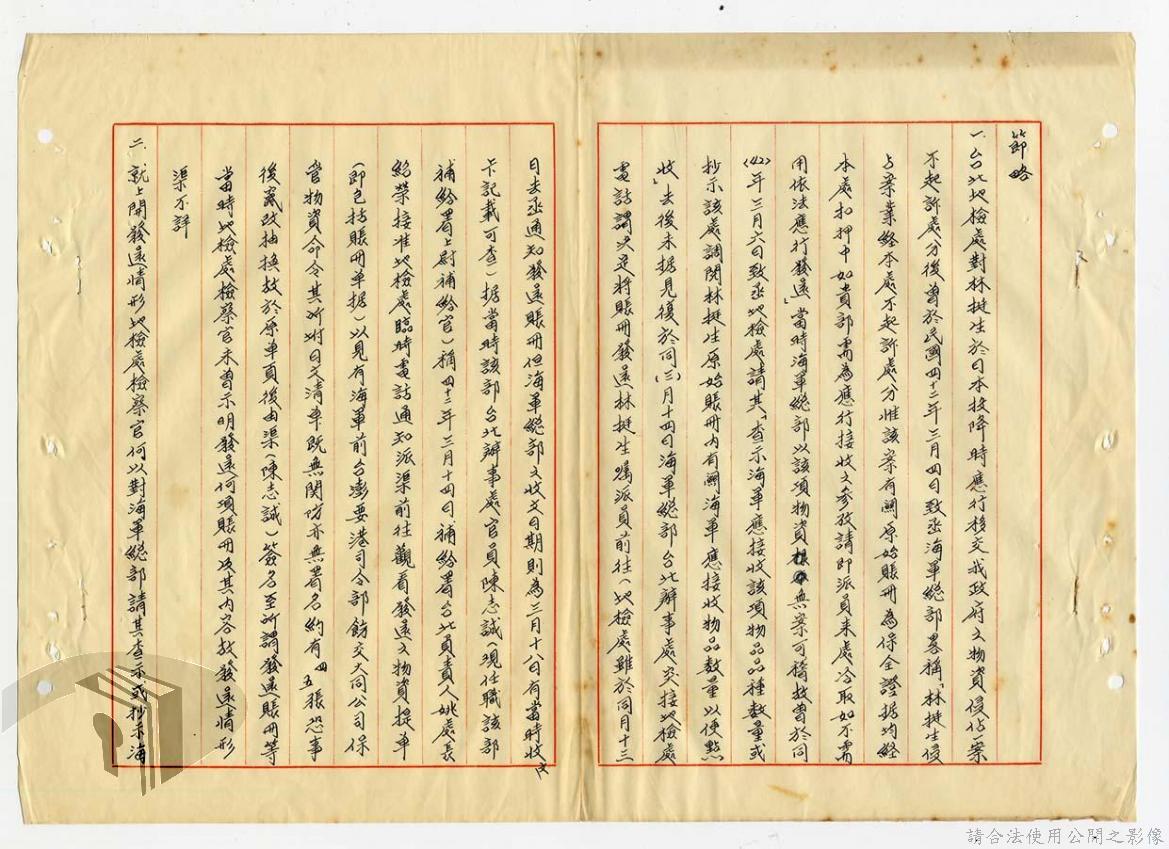 節略
一、台北地檢處對林挺生於日本投降時應行移交我政府之物資侵佔案
不起訴處分後曾於民國四十二年三月四日致函海軍總部畧稱「林挺生侵
占案業經本處不起訴處分惟該案有關原始賬冊為保全證據均經
本處扣押中如貴部需為應行接收之參攷請即派員來處洽取如不需
用依法應行發還」當時海軍總部以該項物資無案可稽故曾於同
(42)年三月六日致函地檢處請其「查示海軍應接收該項物品品種数量或
抄示該處調閱林挺生原始賬冊內有關海軍應接收物品数量以便點
收」去後未據見復於同(三)月十四日海軍總部台北辦事處突接地檢處
電話謂決定將賬冊發還林挺生囑派員前往(地檢處雖於同月十三
日去函通知發還賬冊但海軍總部之收文日期則為三月十八日有當時收文
卡記載可查)據當時該部台北辦事處官員陳志誠(現任職該部
補給署上尉補給官)稱四十二年三月十四日補給署台北負責人姚處長
紹榮接准地檢處臨時電話通知派渠前往觀看發還之物資提單
(即包括賬冊单据)以見有海軍前台澎要港司令部飭交大同公司保
管物資命令其所附日文清单既無関防亦無署名約有四五張恐事
後竄改抽換故於原单頁後由渠(陳志誠)簽名至所謂發還賬冊等
當時地檢處檢察官未曾示明發還何項賬冊及其內容故發還情形
渠不詳
二、就上開發還情形地檢處檢察官何以對海軍總部請其查示或抄示海
請合法使用公開之影像